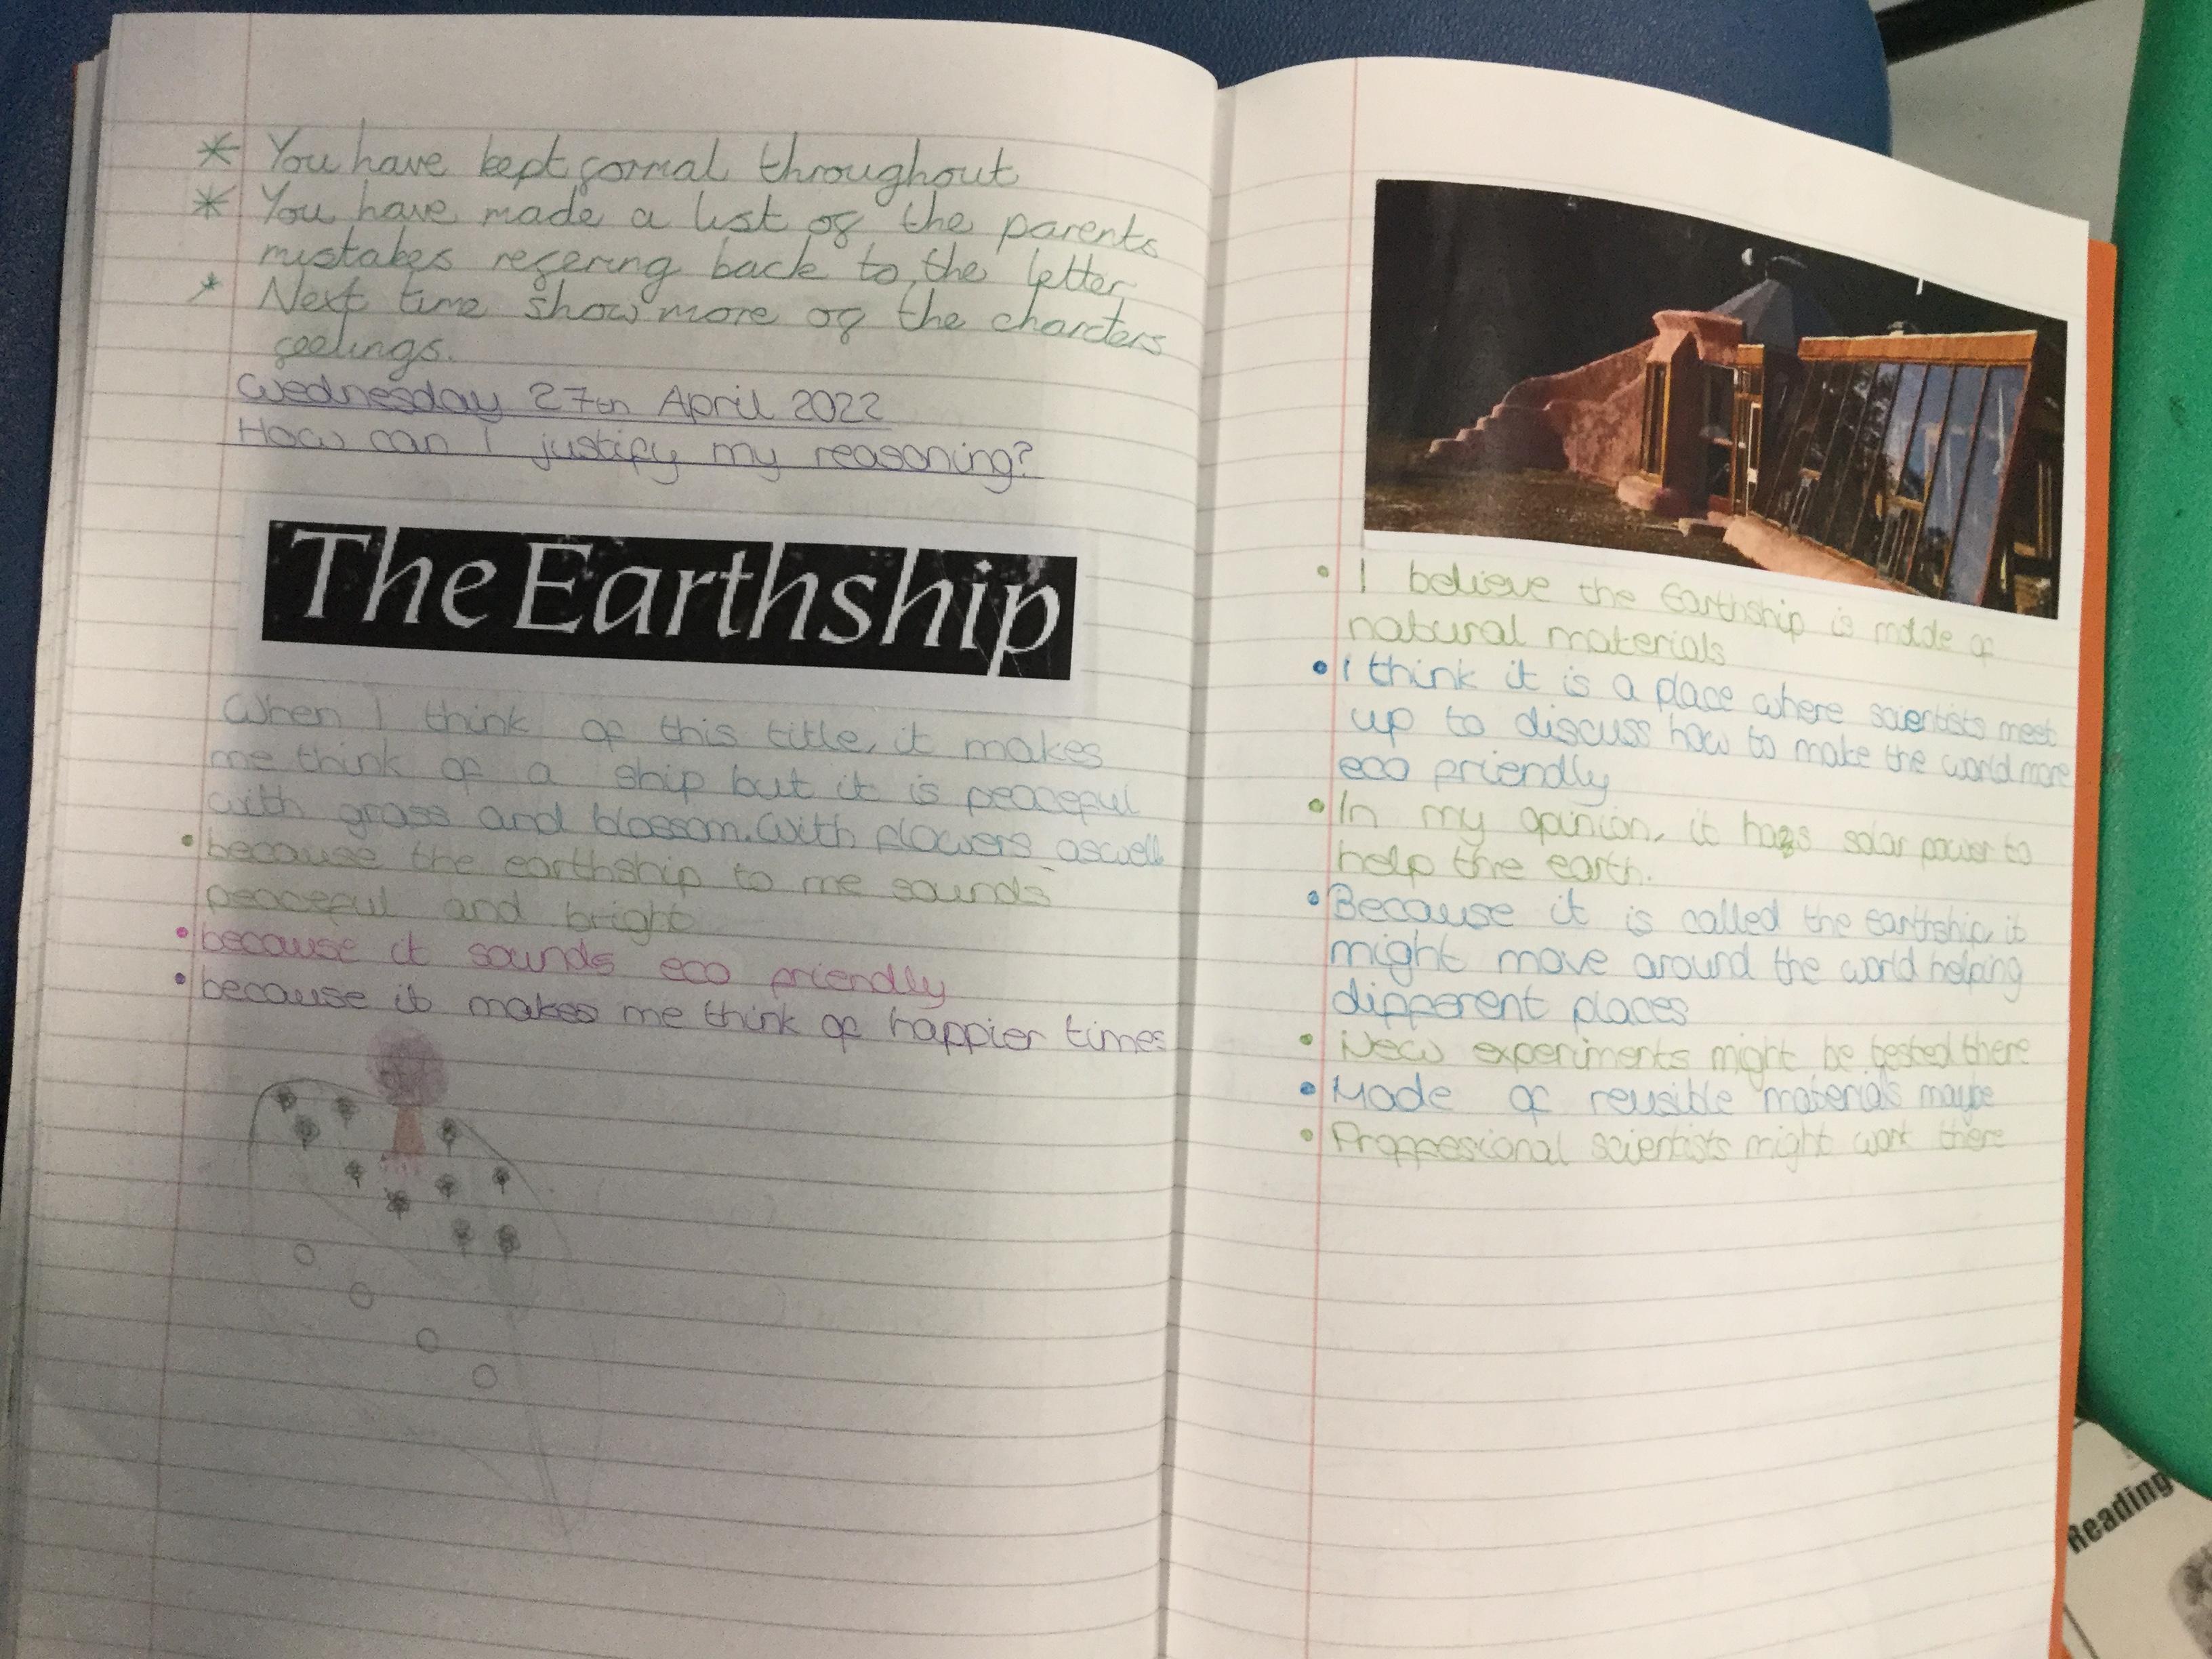 * You have kept formal throughout
* You have made a list of the parents
mistakes refering back to the letter
* Next time show more of the charcters
feelings.
Wednesday 27th April 2022
How can I justify my reasoning?
The Earthship
When I think of this title, it makes
me think of a ship but it is peaceful
with grass and blossom. With flowers aswell
• because the earthship to me sounds
peaceful and bright
• because it sounds eco friendly
• because it makes me think of happier times
• I believe the Earthship is made of
natural materials
• I think it is a place where scientists meet
up to discuss how to make the world more
eco friendly
• In my opinion, it has solar power to
help the earth.
• Because it is called the earthship, it
might move around the world helping
different places
• New experiments might be tested there
• Made of reusible materials maybe
• Proffesional scientists might work there
Reading